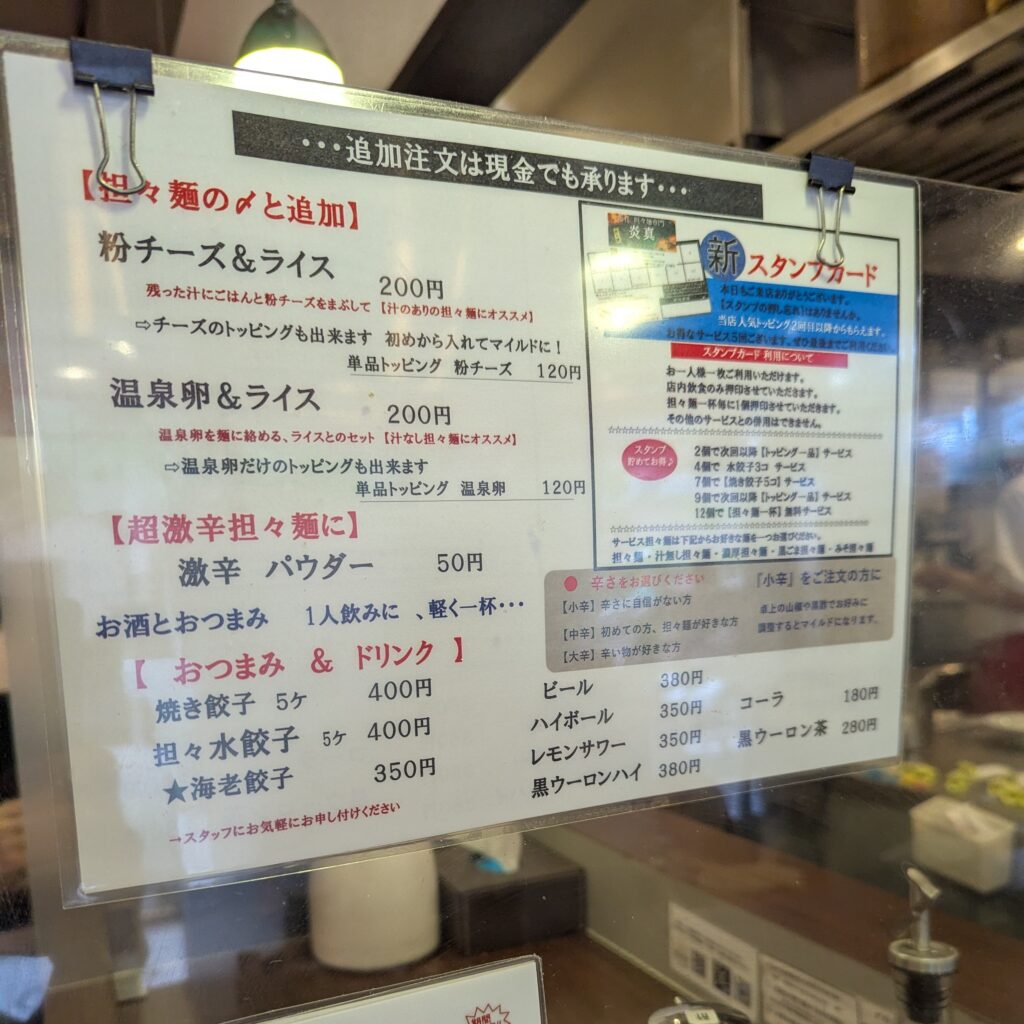 ・・・追加注文は現金でも承ります・・・
【担々麺の〆と追加】
粉チーズ＆ライス 200円
残った汁にごはんと粉チーズをまぶして【汁のありの担々麺にオススメ】
⇨チーズのトッピングも出来ます 初めから入れてマイルドに！
単品トッピング 粉チーズ 120円
温泉卵＆ライス 200円
温泉卵を麺に絡める、ライスとのセット【汁なし担々麺にオススメ】
⇨温泉卵だけのトッピングも出来ます
単品トッピング 温泉卵 120円
【超激辛担々麺に】
激辛 パウダー 50円
お酒とおつまみ 1人飲みに 、軽く一杯・・・
【 おつまみ ＆ ドリンク 】
焼き餃子 5ケ 400円
担々水餃子 5ケ 400円
★海老餃子 350円
→スタッフにお気軽にお申し付けください
ビール 380円
ハイボール 350円
レモンサワー 350円
黒ウーロンハイ 380円
コーラ 180円
黒ウーロン茶 280円
炎真
新 スタンプカード
本日もご来店ありがとうございます。
【スタンプの押し忘れ】はありませんか。
当店人気トッピング2回目以降からもらえます。
お得なサービス5回ございます。ぜひ最後までご利用ください
スタンプカード 利用について
お一人様一枚ご利用いただけます。
店内飲食のみ押印させていただきます。
担々麺一杯毎に1個押印させていただきます。
その他のサービスとの併用はできません。
スタンプ
貯めてお得♪
2個で次回以降【トッピング一品】サービス
4個で 水餃子3コ サービス
7個で【焼き餃子5コ】サービス
9個で次回以降【トッピング一品】サービス
12個で【担々麺一杯】無料サービス
サービス担々麺は下記からお好きな麺を一つお選びください。
担々麺・汁無し担々麺・濃厚担々麺・黒ごま担々麺・みそ担々麺
● 辛さをお選びください
【小辛】辛さに自信がない方
【中辛】初めての方、担々麺が好きな方
【大辛】辛い物が好きな方
『小辛』をご注文の方に
卓上の山椒や黒酢でお好みに
調整するとマイルドになります。
期間